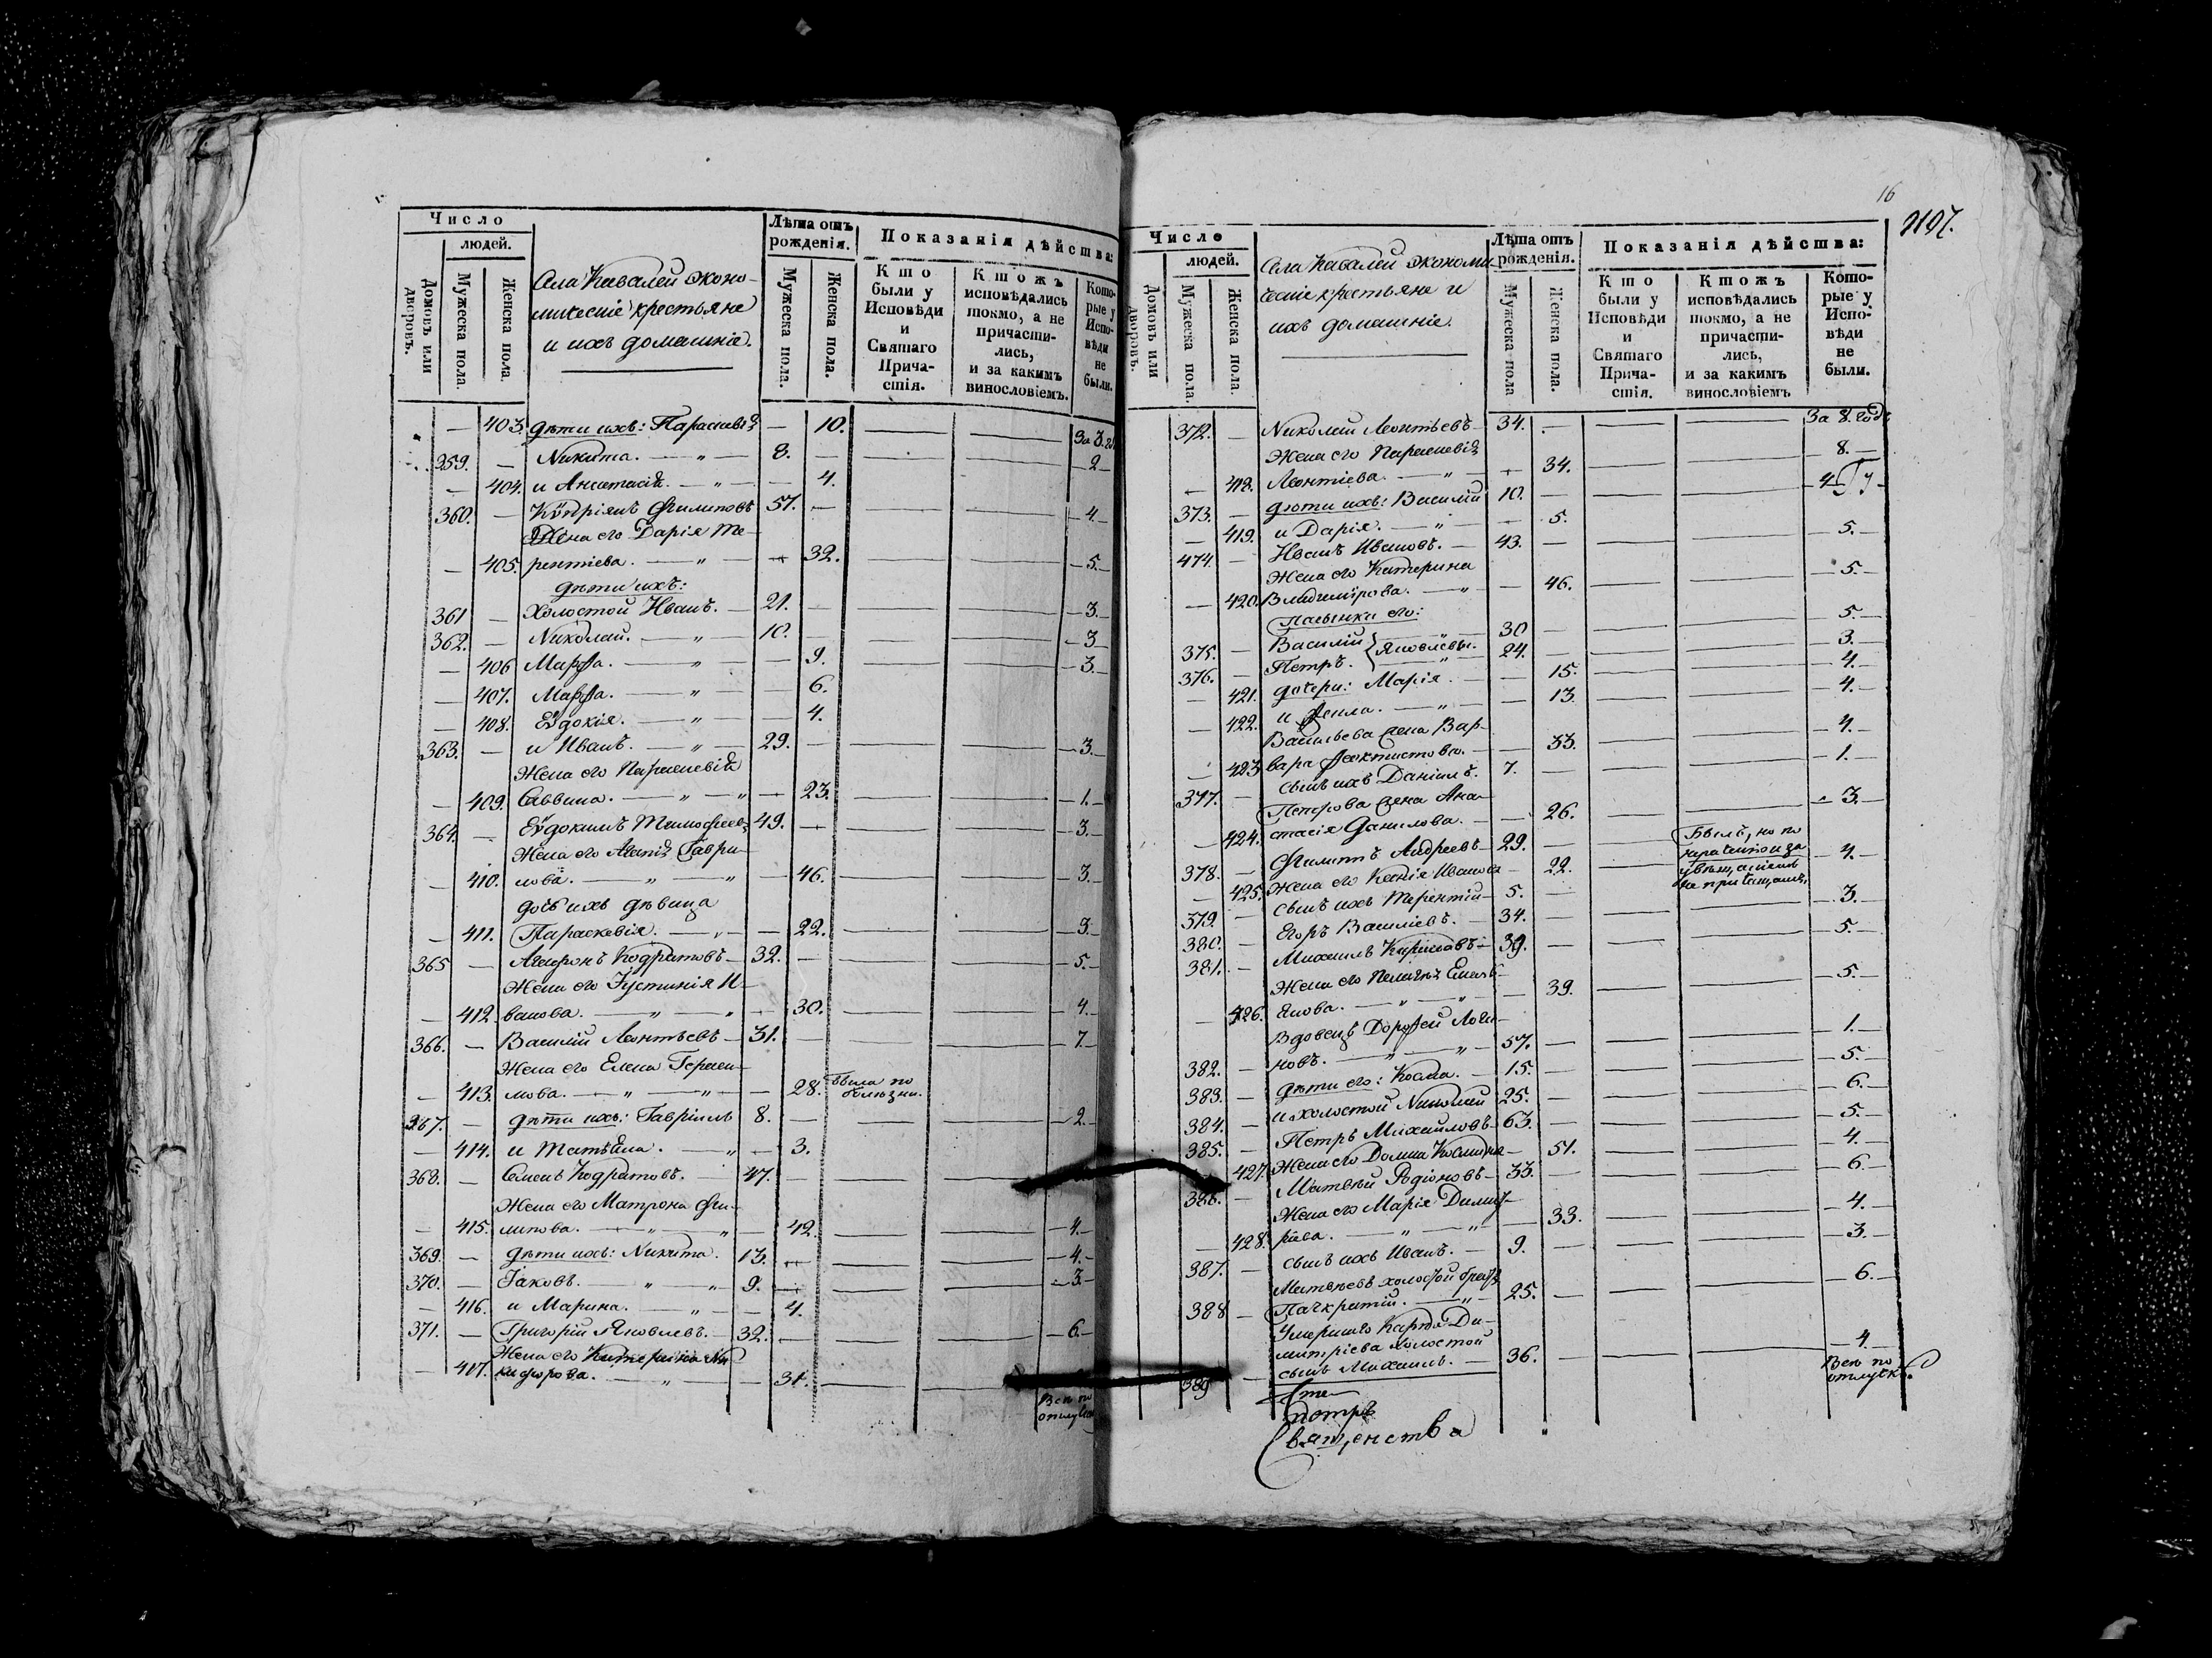 Число
людей.
Домовъ или дворовъ.
Мужеска пола.
Женска пола.
Села Кивалей эконо-
мическіе крестьяне
и ихъ домашніе.
Лѣта отъ рожденія.
Мужеска пола.
Женска пола.
Показанія дѣйства:
Кто были у Исповѣди и Святаго Прича-стія.
Ктожъ исповѣдались токмо, а не причасти-лись, и за какимъ винословіемъ.
Кото-рые у Испо-вѣди не были.
— 403. дѣти ихъ: Параскевія — 10. За 3. го
359. — Никита. — 8. — 2
— 404. и Анастасія. — 4.
360. — Кѵпріянъ Филиповъ 57. — 4.
Жена его Дарія Те-
— 405. рентіева. — 32. 5.
дѣти ихъ:
361 — Холостой Иванъ. — 21. — 3.
362. — Николай. — 10. — 3
— 406 Марѳа. — 9. 3.
— 407. Марѳа. — 6.
— 408. Еѵдокія. — 4.
363. — и Иванъ. — 29. — 3.
Жена его Параскевія
— 409. Саввина. — 23. 1.
364. — Еѵдокимъ Тимофеевъ 49. — 3.
Жена его Гаври-
— 410. лова. — 46. 3.
дочь ихъ дѣвица
— 411. Параскевія. — 22. 3.
365 — Кодратовъ — 32. — 5.
Жена его Іустинія И-
— 412. ванова. — 30. 4.
366. — Василій Леонтьевъ — 31. — 7.
Жена его Елена Гераси-
— 413. мова. — 28. была по болѣзни.
367. — дѣти ихъ: Гавріилъ 8. — 2.
— 414. и Татіана. — 3.
368. — Семенъ Кодратовъ. 47. —
Жена его Матрона Фи-
— 415. липова. — 42. 4.
369. — дѣти ихъ: Никита. 13. — 4.
370. — Іаковъ. — 9. — 3
— 416. и Марина. — 4.
371. — Григорій Яковлевъ. — 32. — 6.
Жена его Катерина Ни
— 417. кифорова. — 31.
Всѣ по
Число
людей.
Домовъ или дворовъ.
Мужеска пола.
Женска пола
16
Села Кивалей экономи-
ческіе крестьяне и
ихъ домашніе.
Лѣта отъ рожденія.
Мужеска пола
Женска пола.
Показанія дѣйства:
Кто были у Исповѣди и Святаго Прича-стія.
Ктожъ исповѣдались токмо, а не причасти-лись, и за какимъ винословіемъ
Кото-рые у Испо-вѣди не были.
372. — Николай Леонтьевъ 34. — За 8. годъ
Жена его Параскевія 8.
— 418. Леонтіева. — 34.
373. — дѣти ихъ: Василій 10. — 4
— 419. и Дарія. — 5.
474. — Иванъ Ивановъ. — 43. — 5.
Жена его Катерина
— 420. Владимірова. — 46. 5.
Пасынки его:
375. — Василій } Яковлевы. 30 — 5.
376. — Петръ. } 24. — 3.
— 421. дочери: Марія. — 15. 4.
— 422. и Ѳекла. — 13. 4.
Васильева жена Вар-
— 423 вара Ѳеоктистова. — 33. 4.
377. — сынъ ихъ Даніилъ. 7. — 1.
Петрова жена Ана-
— 424. стасія Данилова. — 26. 3.
378. — Филиппъ Андреевъ — 29. — Былъ, но по 4.
— 425. Жена его Ксенія Иванова 22.
379. — сынъ ихъ Терентій — 5. — 3.
380. — Егоръ Василіевъ. — 34. — 5.
381. — Михаилъ Кириловъ — 39. —
Жена его 5.
— 426. янова. — 39.
Вдовецъ Дорофей Логи-
382. — новъ. — 57. — 1.
383. — дѣти его: Козма. — 15. — 5.
384. — и холостой Николай 25. — 6.
385. — Петръ Михайловъ — 63. — 5.
— 427. Жена его Домна Космина — 51. 4.
386. — Матвѣй Родіоновъ — 33. — 6.
Жена его Марія Димит-
— 428. ріева. — 33. 4.
387. — сынъ ихъ Иванъ. — 9. — 3.
Матвѣевъ холостой братъ
388 — Панкратій. — 25. — 6.
Умершаго Карпа Ди-
митріева холостой
389 — сынъ Михаилъ. — 36. — 4.
Всѣ по
отлучкѣ.